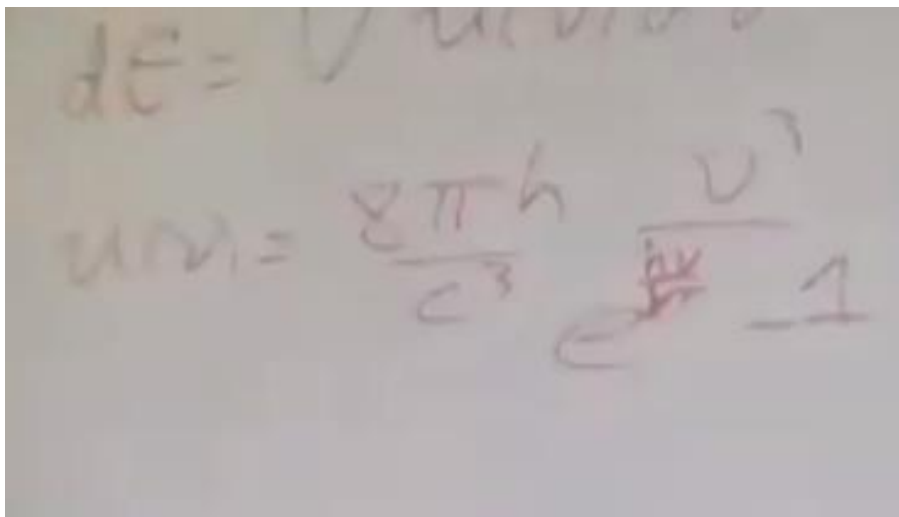 dE = V u(ν) dν
u(ν) = \frac{8πh}{c^3} \frac{ν^3}{e^{\frac{hν}{kT}} - 1}